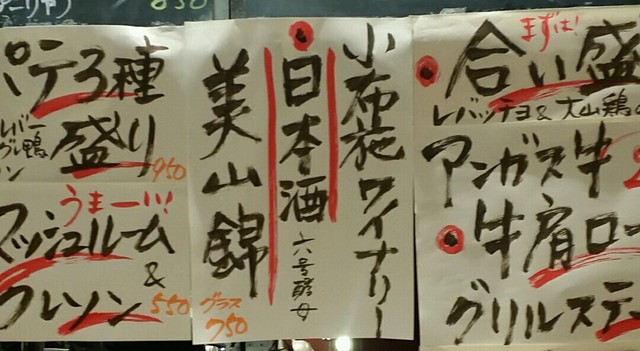 850
パテ3種
レバー
鴨
盛り
950
うまーい!
マッシュルーム
&
クレソン
550
小布施ワイナリー
日本酒
六号酵母
美山錦
グラス
750
まずは!
合い盛
レバッチョ&大山鶏
アンガス牛
牛肩ロー
グリルステー